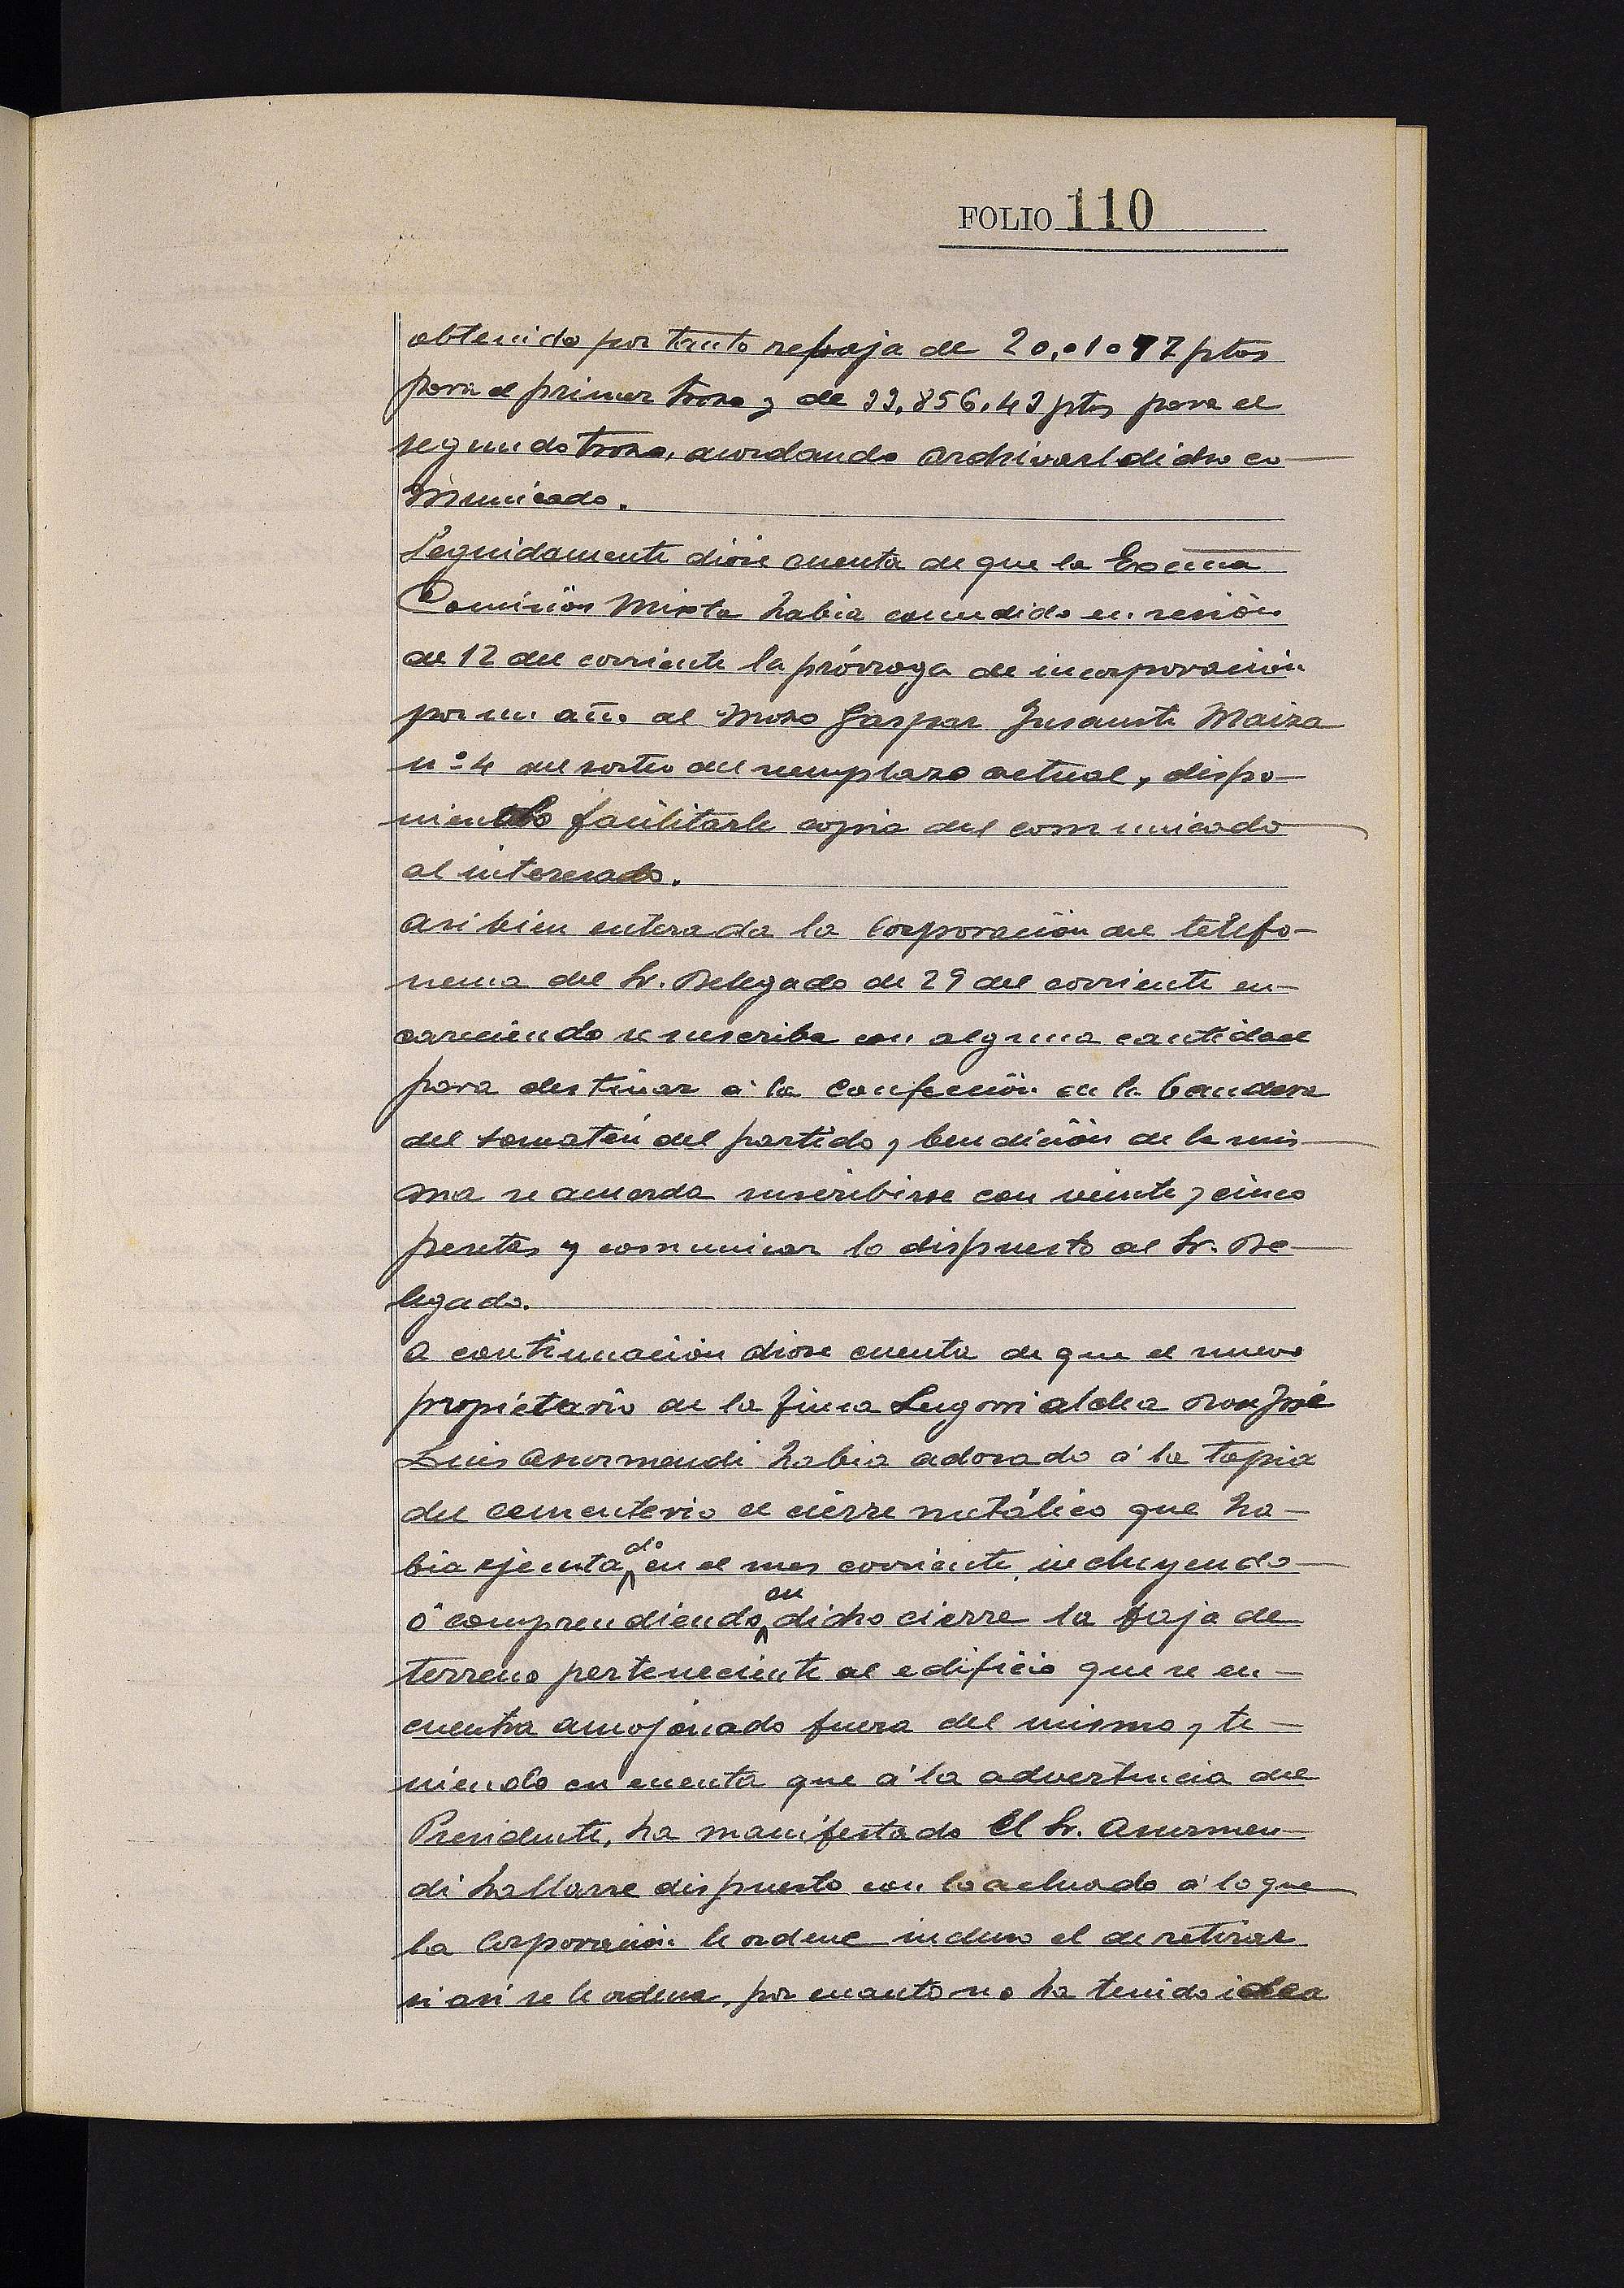 FOLIO 110
obtenido por tanto rebaja de 20,010 77 ptas
para el primer trozo y de 33,856,43 ptas para el
segundo trozo, acordando archivarse dicho co-
municado.
Seguidamente diose cuenta de que la Excma
Comisión Mixta habia concedido en sesión
de 12 del corriente la prórroga de incorporación
por un año al mozo Gaspar Insausti Maiza
nº 4 del sorteo del reemplazo actual, dispo-
niendo facilitarle copia del comunicado
al interesado.
Asi bien enterada la Corporación del telefo-
nema del Sr. Delegado de 29 del corriente en-
careciendo se suscriba con alguna cantidad
para destinar á la confección de la bandera
del somatén del partido y bendición de la mis-
ma se acuerda suscribirse con veinte y cinco
pesetas y comunicar lo dispuesto al Sr. De-
legado.
A continuación diose cuenta de que el nuevo
propietario de la finca Don José
Luis Asurmendi habia adosado á la tapia
del cementerio el cierre metálico que ha-
bia ejecutado en el mes corriente, incluyendo
ó comprendiendo en dicho cierre la faja de
terreno perteneciente al edificio que se en-
cuentra amojonado fuera del mismo, y te-
niendo en cuenta que á la advertencia del
Presidente, ha manifestado El Sr. Asurmen-
di hallarse dispuesto con lo actuado á lo que
la Corporación le ordene incluso el de retirar
si asi se le ordena, por cuanto no ha tenido idea